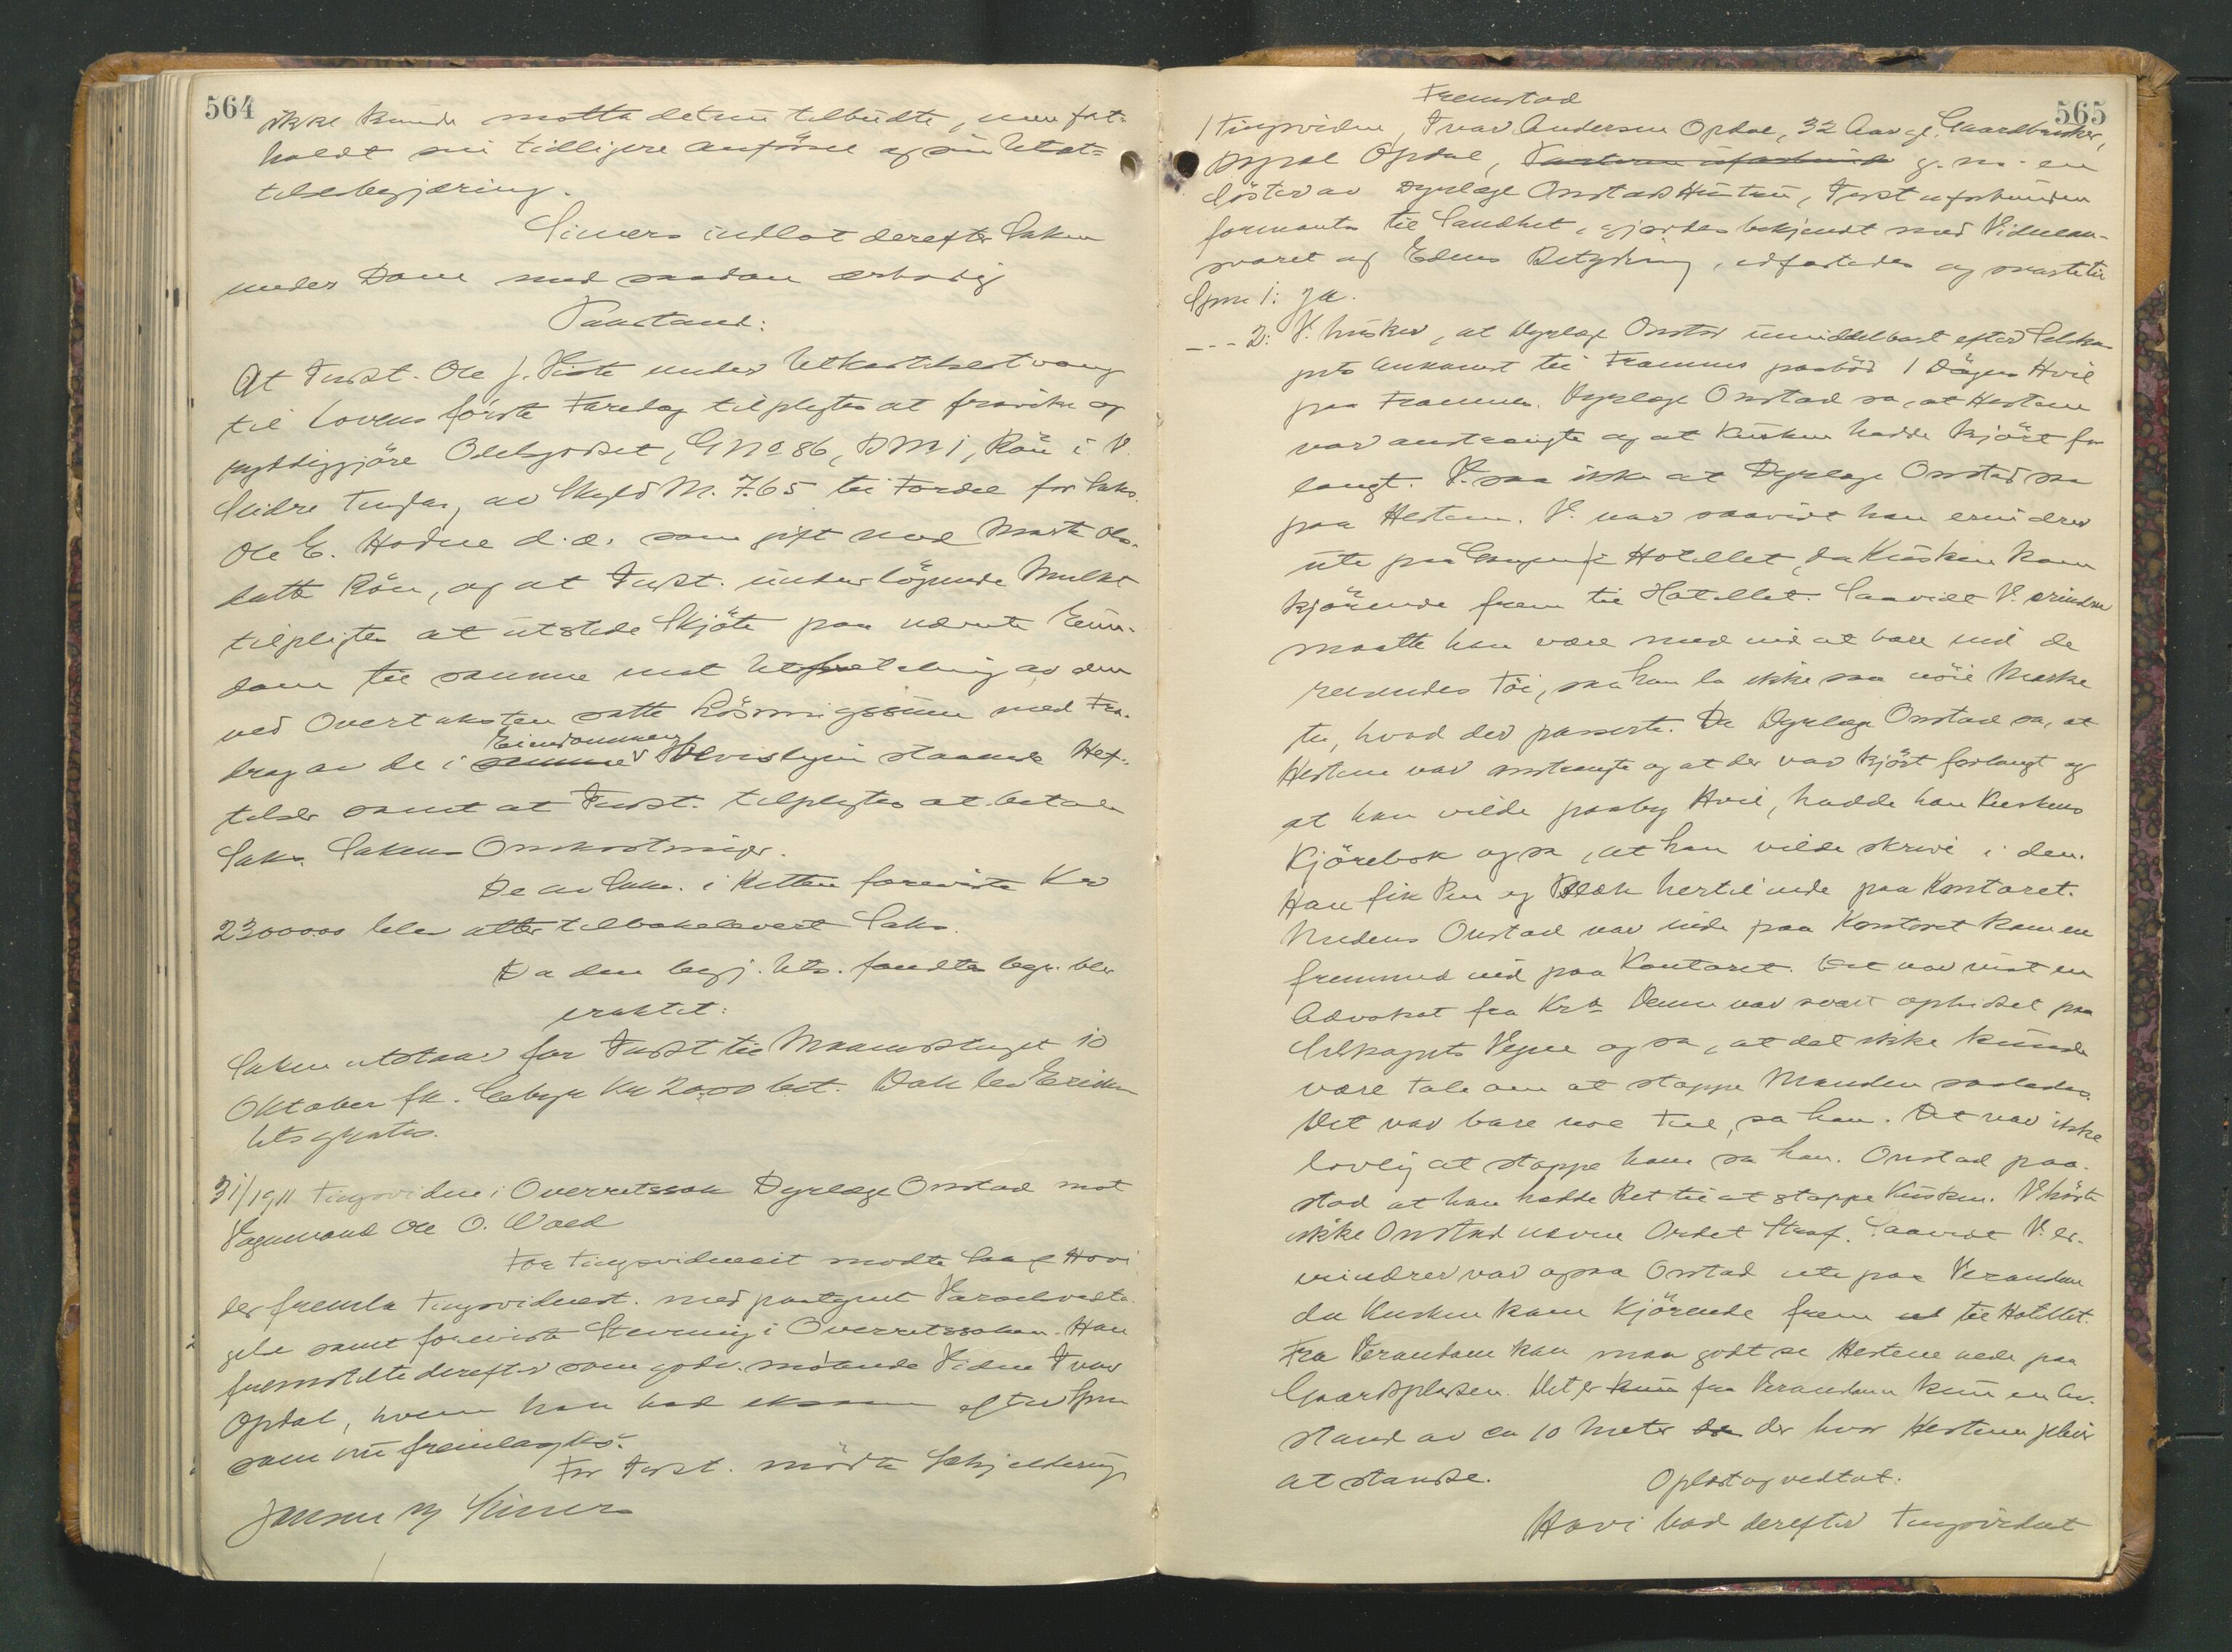 564
ikke kunde motta det nu tilbudte, men fast-
holdt sin tidligere Anførsel og sin Utsæt-
telsebegjæring.
Siewers indlot derefter Saken
under Dom med saadan ærbødig
Paastand:
At Indst. Ole J. Viste under Utkastelsestvang
til Lovens første Faredag tilpligtes at fravike og
ryddiggjøre Odelsgodset, G No 86, B No 1, Røn i V.
Slidre Tinglag, av Skyld M. 7.65 til Fordel for Saks.
Ole E. Hodne d.æ. som gift med Marit Ols-
datter Røn, og at Indst. under løpende Mulkt
tilpligtes at utstede Skjøte paa nævnte Eien-
dom til samme mot Utbetaling av den
ved Overtaksten satte Løsningssum med Fra-
drag av de i Eiendommen Hvorvidt staaende Hef-
telser samt at Indst. tilpligtes at betale
Saks. Sakens Omkostninger.
De av Saks. i Retten foreviste Kr
23000.00 blev atter tilbakelevert Saks.
Da den begj. Uts. fandtes begr. blev
eraktet:
Saken utstaar for Indst til Maanedstinget 10
Oktober fk. Gebyr Kr 20.00 bet.
Uts
31/ 1911 Tingsvidne i Overretssak Dyrlæge Onstad mot
Vognmand Ole O. Wold
For Tingsvidnerekv. mødte Sagf Hovi
der fremla Tingsvidnest. med paategnet Varselsvedta-
gelse samt foreviste Stevning i Overretssaken. Han
fremstillte derefter som godv. møtende Vidne Ivar
Opdal, hvem han bad eksam. efter Spm
som nu fremlagdes.
For Indst. mødte Schjelderup
Jensen Siewers
565
Fremstod
1 Tingsvidne, Ivar Andersen Opdal, 32 Aar gl. Gaardbruker,
Opdal, g. m. en
Søster av Dyrlæge Onstads Hustru, Indst uforbunden
formantes til Sandhet, gjordes bekjendt med Vidnean-
svaret og Edens Betydning, edfæstedes og svarte til
Spm 1: Ja.
--- 2: V. husker, at Dyrlæge Onstad umiddelbart efter Selska-
pets Ankomst til Framnes paabød 1 Døgns Hvil
paa Framnes. Dyrlæge Onstad sa, at Hestene
var anstrengte og at Kusken hadde kjørt for
langt. V. saa ikke at Dyrlæge Onstad saa
paa Hestene. V. var saavidt han erindrer
ute paa Gangen i Hotellet, da Kusken kom
kjørende frem til Hotellet. Saavidt V. erindrer
maatte han være med ned at bære ind de
reisendes Tøi, saa han la ikke saa nøie Merke
til, hvad der passerte. Da Dyrlæge Onstad sa, at
Hestene var anstrengte og at der var kjørt forlangt og
at han vilde paaby Hvil, hadde han Kuskens
Kjørebok og sa, at han vilde skrive i den.
Han fik Pen og Blæk hertil inde paa Kontoret.
Medens Onstad var inde paa Kontoret kom en
fremmed ind paa Kontoret. Det var vist en
Advokat fra Kra Denne var svært ophidset paa
Selskapets Vegne og sa, at det ikke kunde
være Tale om at stoppe Manden saaledes.
Det var bare noe Tul, sa han. Det var ikke
lovlig at stoppe ham sa han. Onstad paa-
stod at han hadde Ret til at stoppe Kusken. V hørte
ikke Onstad nevne Ordet Straf. Saavidt V. er-
indrer var ogsaa Onstad ute paa Verandaen
da Kusken kom kjørende frem til Hotellet.
Fra Verandaen kan man godt se Hestene nede paa
Gaardsplassen. Det er kun fra Verandaen kun en Av-
stand av ca 10 Meter der hvor Hestene pleier
at standse. Oplæst og vedtat.
Hovi bad derefter Tingsvidnet